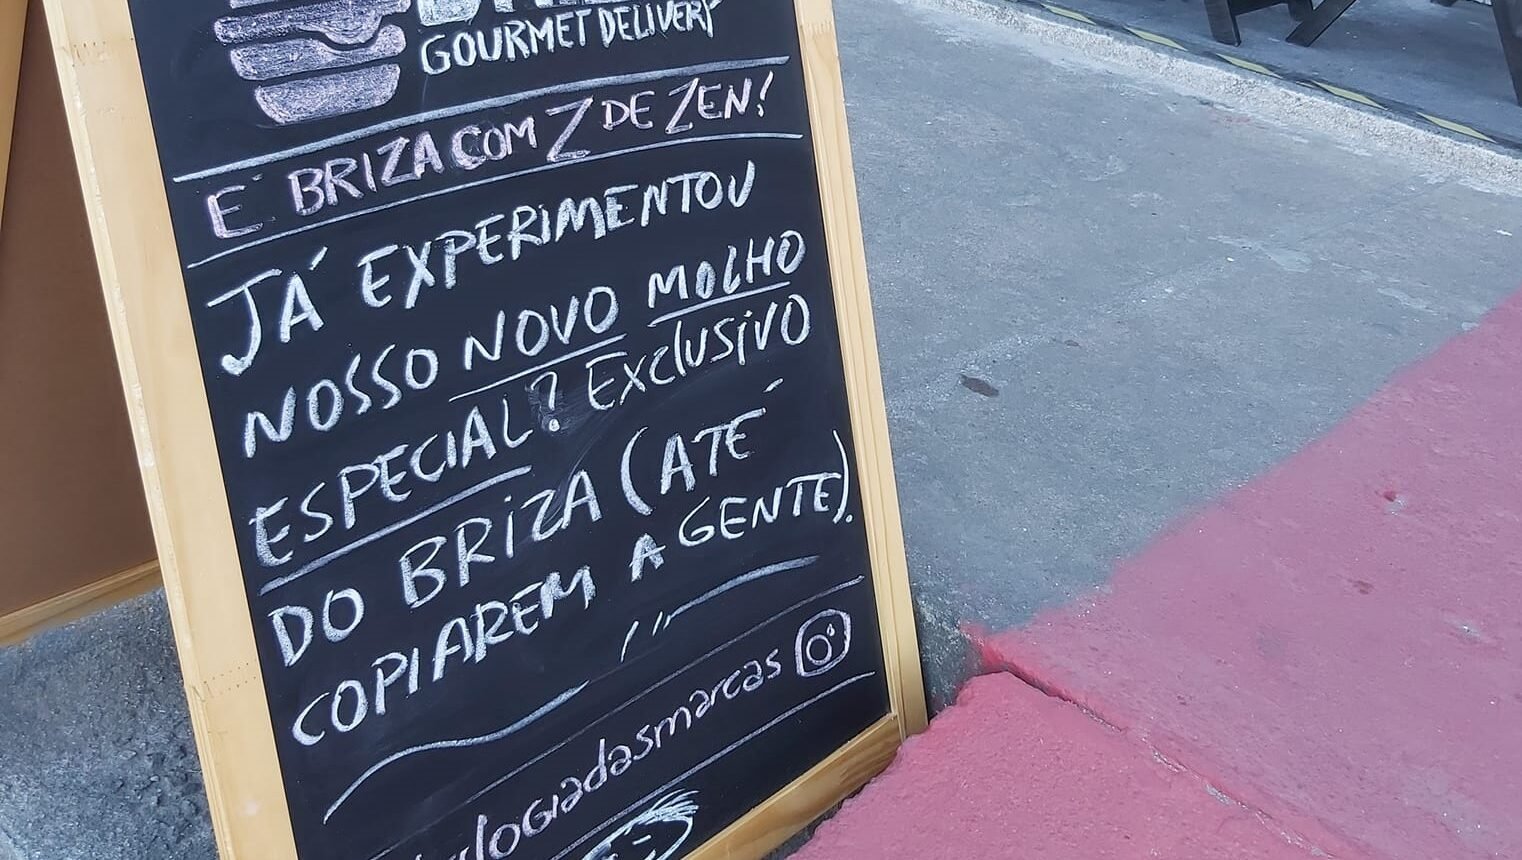 GOURMET DELIVERY
É BRIZA COM Z DE ZEN!
JÁ EXPERIMENTOU
NOSSO NOVO MOLHO
ESPECIAL? EXCLUSIVO
DO BRIZA (ATÉ
COPIAREM A GENTE).